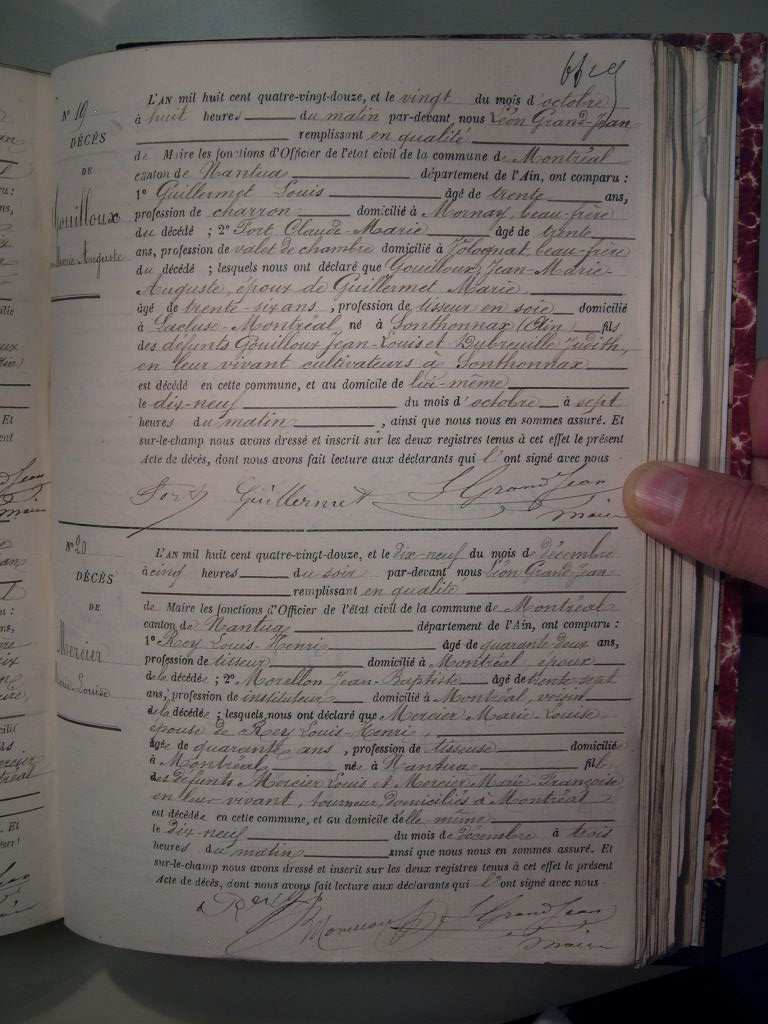 N° 19
DÉCÈS
DE
Gouilloux
Marie Auguste
L'AN mil huit cent quatre-vingt-douze, et le vingt du mois d'octobre
à huit heures du matin par-devant nous Léon Grand-Jean
remplissant en qualité
de Maire les fonctions d'Officier de l'état civil de la commune de Montréal
canton de Nantua département de l'Ain, ont comparu :
1° Guillermet Louis âgé de trente ans,
profession de charron domicilié à Mornay, beau-frère
du décédé ; 2° Fort Claude-Marie âgé de trente
ans, profession de valet de chambre domicilié à Volognat, beau-frère
du décédé ; lesquels nous ont déclaré que Gouilloux Jean-Marie-
Auguste, époux de Guillermet Marie
âgé de trente-six ans, profession de tisseur en soie domicilié
à Lacluse-Montréal, né à Sonthonnax (Ain) fils
des défunts Gouilloux Jean-Louis et Dubreuille Judith,
en leur vivant cultivateurs à Sonthonnax
est décédé en cette commune, et au domicile de lui-même
le dix-neuf du mois d'octobre à sept
heures du matin, ainsi que nous nous en sommes assuré. Et
sur-le-champ nous avons dressé et inscrit sur les deux registres tenus à cet effet le présent
Acte de décès, dont nous avons fait lecture aux déclarants qui l'ont signé avec nous
Fort Guillermet L Grand Jean
maire
N° 20
DÉCÈS
DE
Mercier
Marie Louise
L'AN mil huit cent quatre-vingt-douze, et le dix-neuf du mois de décembre
à cinq heures du soir par-devant nous Léon Grand-Jean
remplissant en qualité
de Maire les fonctions d'Officier de l'état civil de la commune de Montréal
canton de Nantua département de l'Ain, ont comparu :
1° Rey Louis-Henri âgé de quarante deux ans,
profession de tisseur domicilié à Montréal époux
de la décédée ; 2° Morellon Jean-Baptiste âgé de trente sept
ans, profession de instituteur domicilié à Montréal, voisin
de la décédée ; lesquels nous ont déclaré que Mercier Marie Louise
épouse de Rey Louis-Henri,
âgée de quarante ans, profession de tisseuse domicilié
à Montréal née à Nantua fille
des défunts Mercier Louis et Mercier Marie Françoise
en leur vivant, tourneur, domiciliés à Montréal
est décédée en cette commune, et au domicile d'elle-même
le dix-neuf du mois de décembre à trois
heures du matin ainsi que nous nous en sommes assuré. Et
sur-le-champ nous avons dressé et inscrit sur les deux registres tenus à cet effet le présent
Acte de décès, dont nous avons fait lecture aux déclarants qui l'ont signé avec nous
Rey L Grand Jean
maire